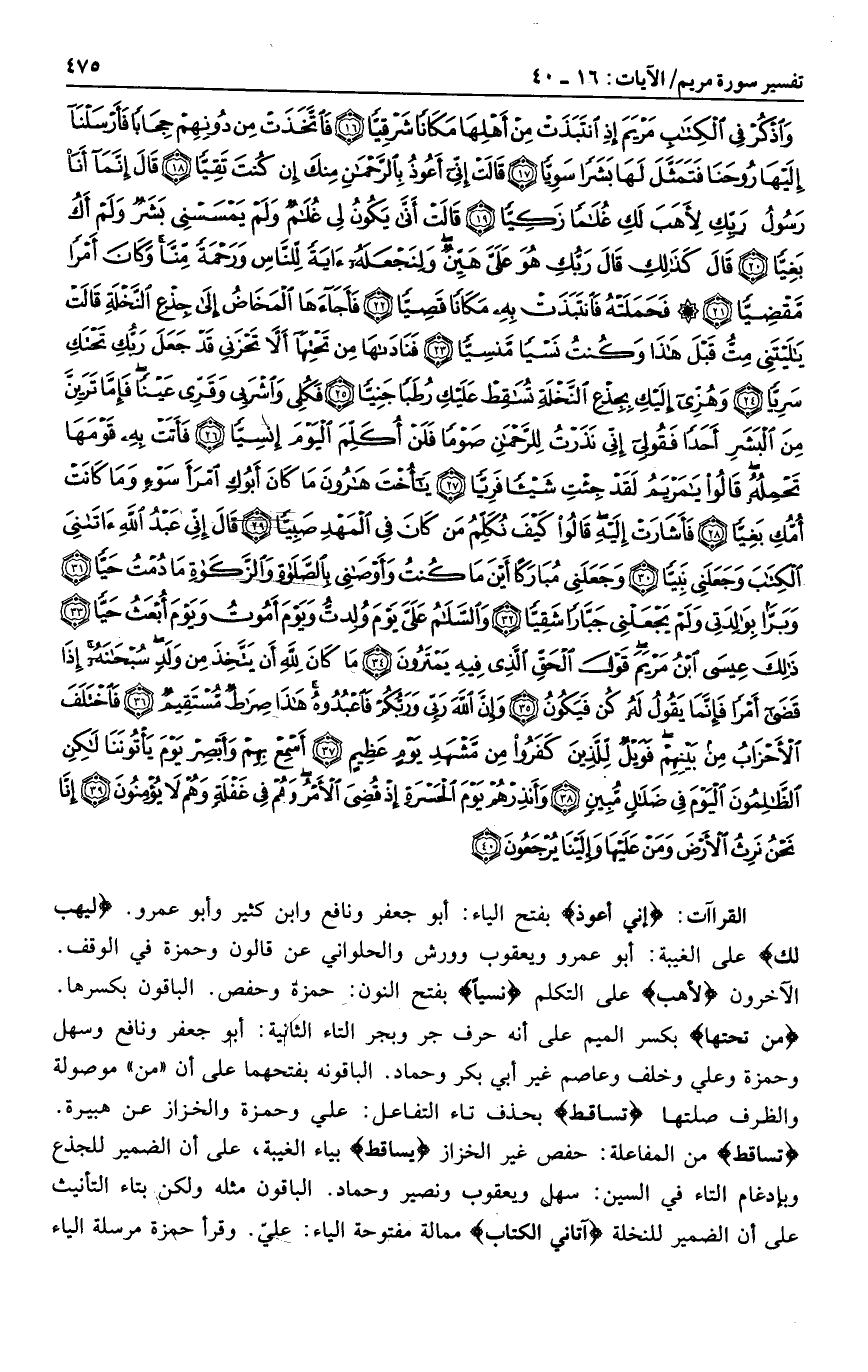 تفسير سورة مريم/ الآيات: ١٦ - ٤٠
٤٧٥
وَاذْكُرْ فِي الْكِتَابِ مَرْيَمَ إِذِ انتَبَذَتْ مِنْ أَهْلِهَا مَكَانًا شَرْقِيًّا ﴿١٦﴾ فَاتَّخَذَتْ مِن دُونِهِمْ حِجَابًا فَأَرْسَلْنَا
إِلَيْهَا رُوحَنَا فَتَمَثَّلَ لَهَا بَشَرًا سَوِيًّا ﴿١٧﴾ قَالَتْ إِنِّي أَعُوذُ بِالرَّحْمَٰنِ مِنكَ إِن كُنتَ تَقِيًّا ﴿١٨﴾ قَالَ إِنَّمَا أَنَا
رَسُولُ رَبِّكِ لِأَهَبَ لَكِ غُلَامًا زَكِيًّا ﴿١٩﴾ قَالَتْ أَنَّىٰ يَكُونُ لِي غُلَامٌ وَلَمْ يَمْسَسْنِي بَشَرٌ وَلَمْ أَكُ
بَغِيًّا ﴿٢٠﴾ قَالَ كَذَٰلِكِ قَالَ رَبُّكِ هُوَ عَلَيَّ هَيِّنٌ وَلِنَجْعَلَهُ ءَايَةً لِّلنَّاسِ وَرَحْمَةً مِّنَّا وَكَانَ أَمْرًا
مَّقْضِيًّا ﴿٢١﴾ ۞ فَحَمَلَتْهُ فَانتَبَذَتْ بِهِ مَكَانًا قَصِيًّا ﴿٢٢﴾ فَأَجَاءَهَا الْمَخَاضُ إِلَىٰ جِذْعِ النَّخْلَةِ قَالَتْ
يَٰلَيْتَنِي مِتُّ قَبْلَ هَٰذَا وَكُنتُ نَسْيًا مَّنسِيًّا ﴿٢٣﴾ فَنَادَاهَا مِن تَحْتِهَا أَلَّا تَحْزَنِي قَدْ جَعَلَ رَبُّكِ تَحْتَكِ
سَرِيًّا ﴿٢٤﴾ وَهُزِّي إِلَيْكِ بِجِذْعِ النَّخْلَةِ تُسَاقِطْ عَلَيْكِ رُطَبًا جَنِيًّا ﴿٢٥﴾ فَكُلِي وَاشْرَبِي وَقَرِّي عَيْنًا فَإِمَّا تَرَيِنَّ
مِنَ الْبَشَرِ أَحَدًا فَقُولِي إِنِّي نَذَرْتُ لِلرَّحْمَٰنِ صَوْمًا فَلَنْ أُكَلِّمَ الْيَوْمَ إِنسِيًّا ﴿٢٦﴾ فَأَتَتْ بِهِ قَوْمَهَا
تَحْمِلُهُ قَالُوا يَٰمَرْيَمُ لَقَدْ جِئْتِ شَيْئًا فَرِيًّا ﴿٢٧﴾ يَٰأُخْتَ هَارُونَ مَا كَانَ أَبُوكِ امْرَأَ سَوْءٍ وَمَا كَانَتْ
أُمُّكِ بَغِيًّا ﴿٢٨﴾ فَأَشَارَتْ إِلَيْهِ قَالُوا كَيْفَ نُكَلِّمُ مَن كَانَ فِي الْمَهْدِ صَبِيًّا ﴿٢٩﴾ قَالَ إِنِّي عَبْدُ اللَّهِ ءَاتَانِيَ
الْكِتَابَ وَجَعَلَنِي نَبِيًّا ﴿٣٠﴾ وَجَعَلَنِي مُبَارَكًا أَيْنَ مَا كُنتُ وَأَوْصَانِي بِالصَّلَوٰةِ وَالزَّكَوٰةِ مَا دُمْتُ حَيًّا ﴿٣١﴾
وَبَرًّا بِوَالِدَتِي وَلَمْ يَجْعَلْنِي جَبَّارًا شَقِيًّا ﴿٣٢﴾ وَالسَّلَامُ عَلَيَّ يَوْمَ وُلِدتُّ وَيَوْمَ أَمُوتُ وَيَوْمَ أُبْعَثُ حَيًّا ﴿٣٣﴾
ذَٰلِكَ عِيسَى ابْنُ مَرْيَمَ قَوْلَ الْحَقِّ الَّذِي فِيهِ يَمْتَرُونَ ﴿٣٤﴾ مَا كَانَ لِلَّهِ أَن يَتَّخِذَ مِن وَلَدٍ سُبْحَانَهُ إِذَا
قَضَىٰ أَمْرًا فَإِنَّمَا يَقُولُ لَهُ كُن فَيَكُونُ ﴿٣٥﴾ وَإِنَّ اللَّهَ رَبِّي وَرَبُّكُمْ فَاعْبُدُوهُ هَٰذَا صِرَاطٌ مُّسْتَقِيمٌ ﴿٣٦﴾ فَاخْتَلَفَ
الْأَحْزَابُ مِن بَيْنِهِمْ فَوَيْلٌ لِّلَّذِينَ كَفَرُوا مِن مَّشْهَدِ يَوْمٍ عَظِيمٍ ﴿٣٧﴾ أَسْمِعْ بِهِمْ وَأَبْصِرْ يَوْمَ يَأْتُونَنَا لَٰكِنِ
الظَّالِمُونَ الْيَوْمَ فِي ضَلَالٍ مُّبِينٍ ﴿٣٨﴾ وَأَنذِرْهُمْ يَوْمَ الْحَسْرَةِ إِذْ قُضِيَ الْأَمْرُ وَهُمْ فِي غَفْلَةٍ وَهُمْ لَا يُؤْمِنُونَ ﴿٣٩﴾ إِنَّا
نَحْنُ نَرِثُ الْأَرْضَ وَمَنْ عَلَيْهَا وَإِلَيْنَا يُرْجَعُونَ ﴿٤٠﴾
القراآت: ﴿إني أعوذ﴾ بفتح الياء: أبو جعفر ونافع وابن كثير وأبو عمرو. ﴿ليهب
لك﴾ على الغيبة: أبو عمرو ويعقوب وورش والحلواني عن قالون وحمزة في الوقف.
الآخرون ﴿لأهب﴾ على التكلم ﴿نسياً﴾ بفتح النون: حمزة وحفص. الباقون بكسرها.
﴿من تحتها﴾ بكسر الميم على أنه حرف جر وبجر التاء الثانية: أبو جعفر ونافع وسهل
وحمزة وعلي وخلف وعاصم غير أبي بكر وحماد. الباقونه بفتحهما على أن «من» موصولة
والظرف صلتها ﴿تساقط﴾ بحذف تاء التفاعل: علي وحمزة والخزاز عن هبيرة.
﴿تساقط﴾ من المفاعلة: حفص غير الخزاز ﴿يساقط﴾ بياء الغيبة، على أن الضمير للجذع
وبإدغام التاء في السين: سهل ويعقوب ونصير وحماد. الباقون مثله ولكن بتاء التأنيث
على أن الضمير للنخلة ﴿آتاني الكتاب﴾ ممالة مفتوحة الياء: عليّ. وقرأ حمزة مرسلة الياء